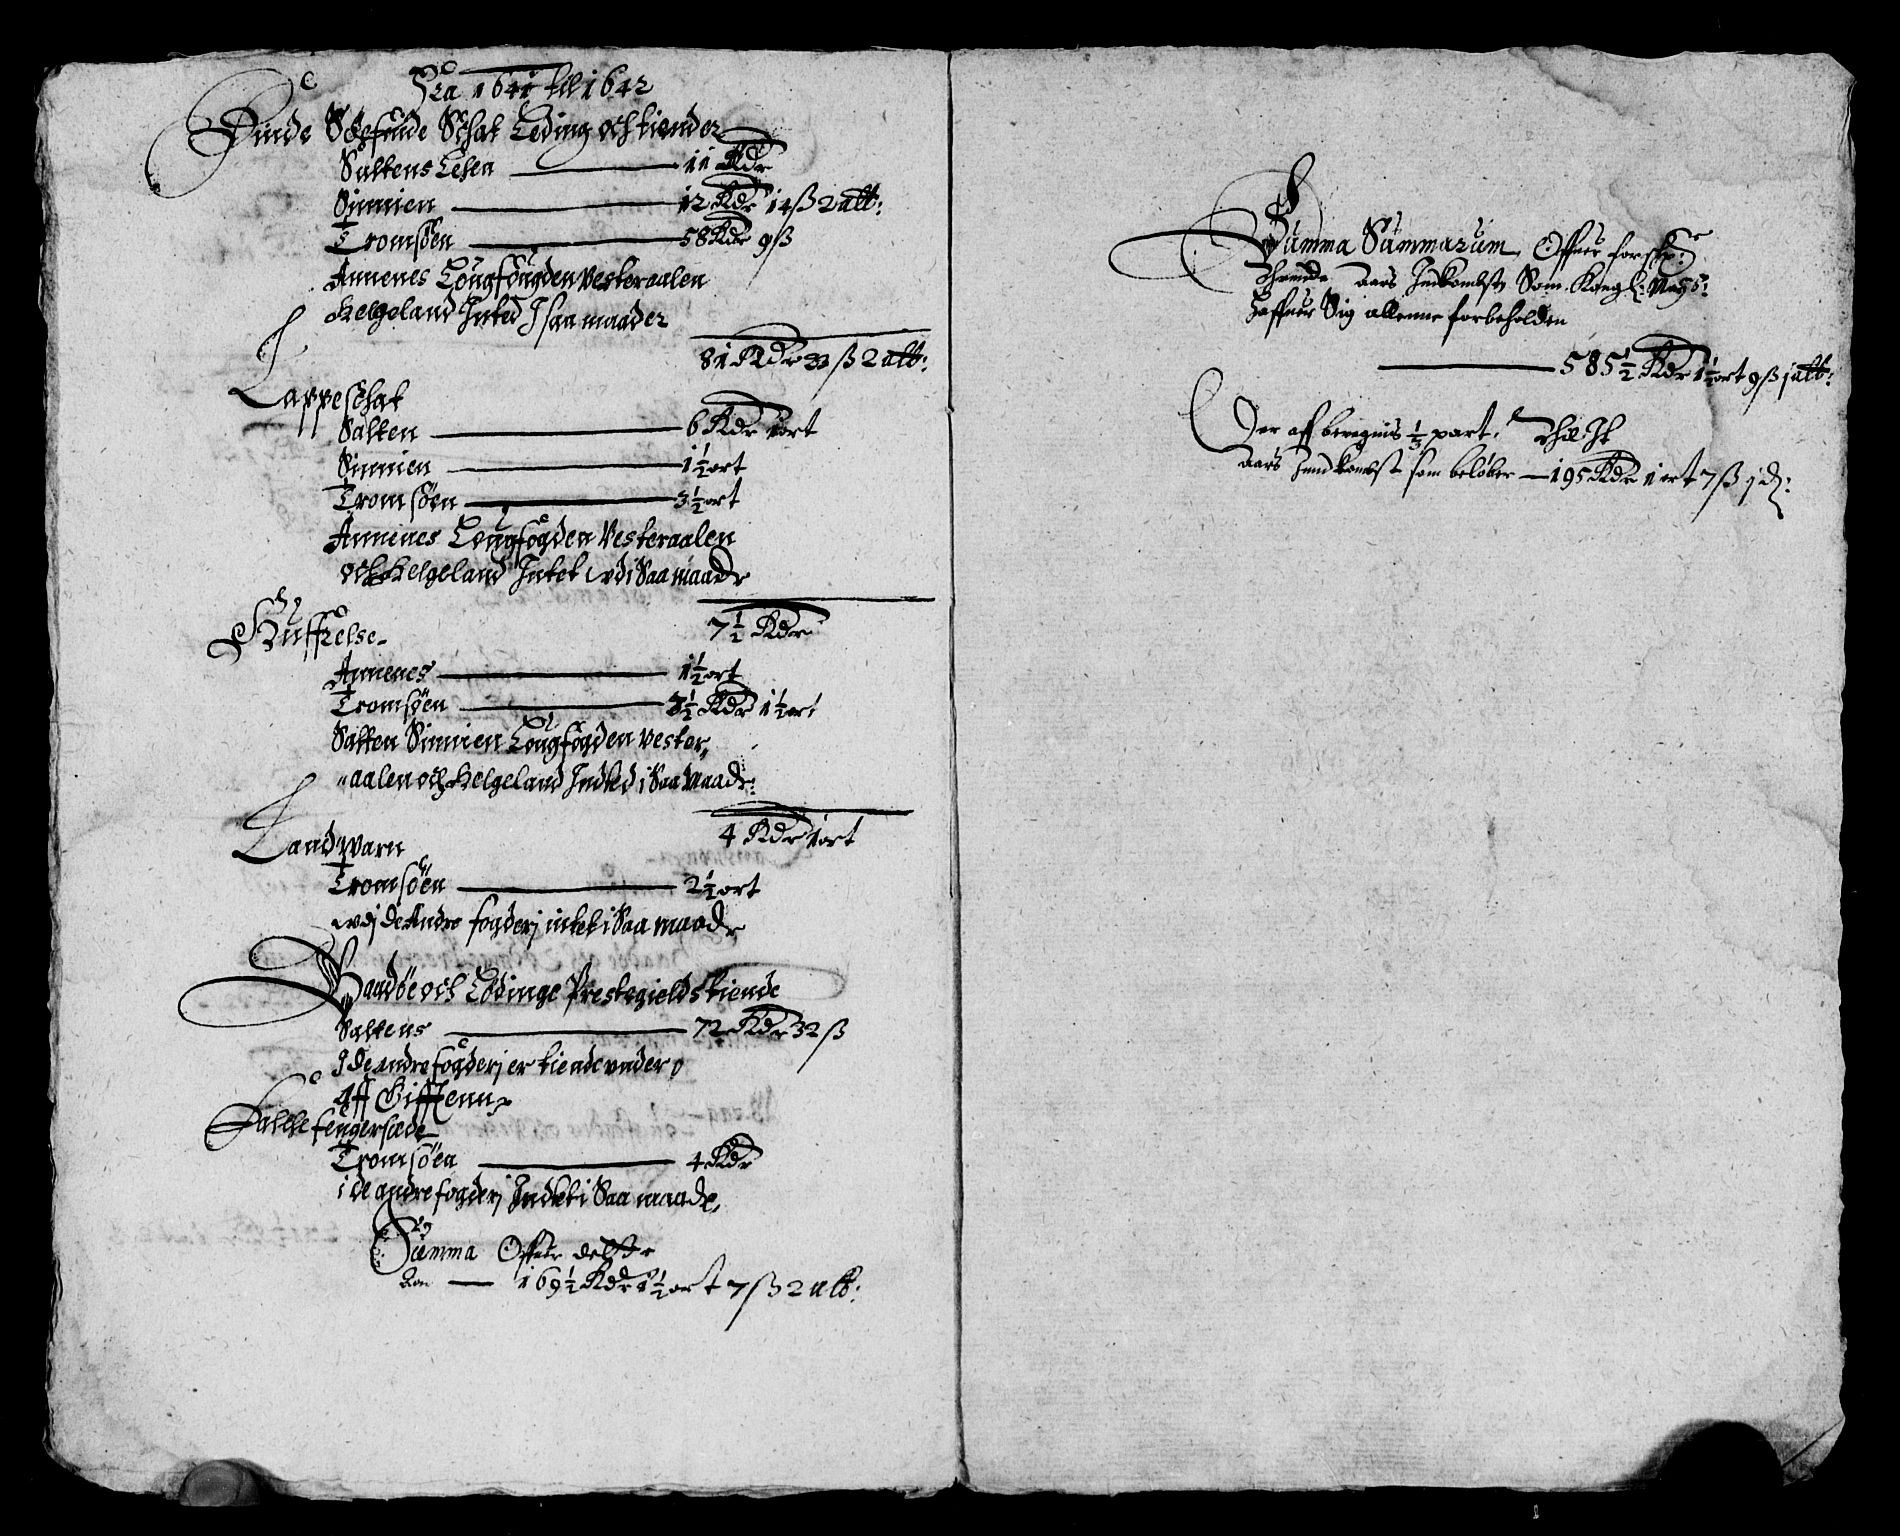 Fra 1641 til 1642
Uvisse Schat Leding och tiender
Saltens Lehen — 11 Rdr
Sinnien — 12 Rdr 14 ß 2 alb:
Tromsöen — 58 Rdr 9 ß
Annenes Lougfougden Vesteraalen
Helgeland Inted J saa maader
81 Rdr 23 ß 2 alb:
Lappeschat
Salten — 6 Rdr 1 ort
Sinnien — 1½ ort
Tromsöen — 3½ ort
Annenes Lougfogden Vesteraalen
och Helgeland Intet udi Saa maader
7½ Rdr
Annenes — 1½ ort
Tromsöen — 3½ Rdr 1½ ort
Salten Sinnien Lougfogden Vester
aalen och Helgeland Indted i Saa maader:
4 Rdr 1 ort
Landwarn
Tromsöen — 2½ ort
udj de Andre fogderj intet i Saa maader
Baadöe och Lödinge Prestegields tiende
Saltens — 72 Rdr 32 ß
I de andre fogderj er tiende under
Aff Gifften
Tromsöen — 4 Rdr
i de andre fogderj Indtet i Saa maade
Summa Offuer dette
Aar — 169½ Rdr 1½ ort 7 ß 2 alb:
Summa Summarum Offuer forschr:
Thrende Aars Indkombst Som Kongl: Mays:
haffuer Sig allenne forbeholden
— 585½ Rdr 1½ ort 9 ß 1 alb:
Der aff beregnis ⅓ part
Aars Inndkombst som beløber — 195 Rdr 1 ort 7 ß 1 d: